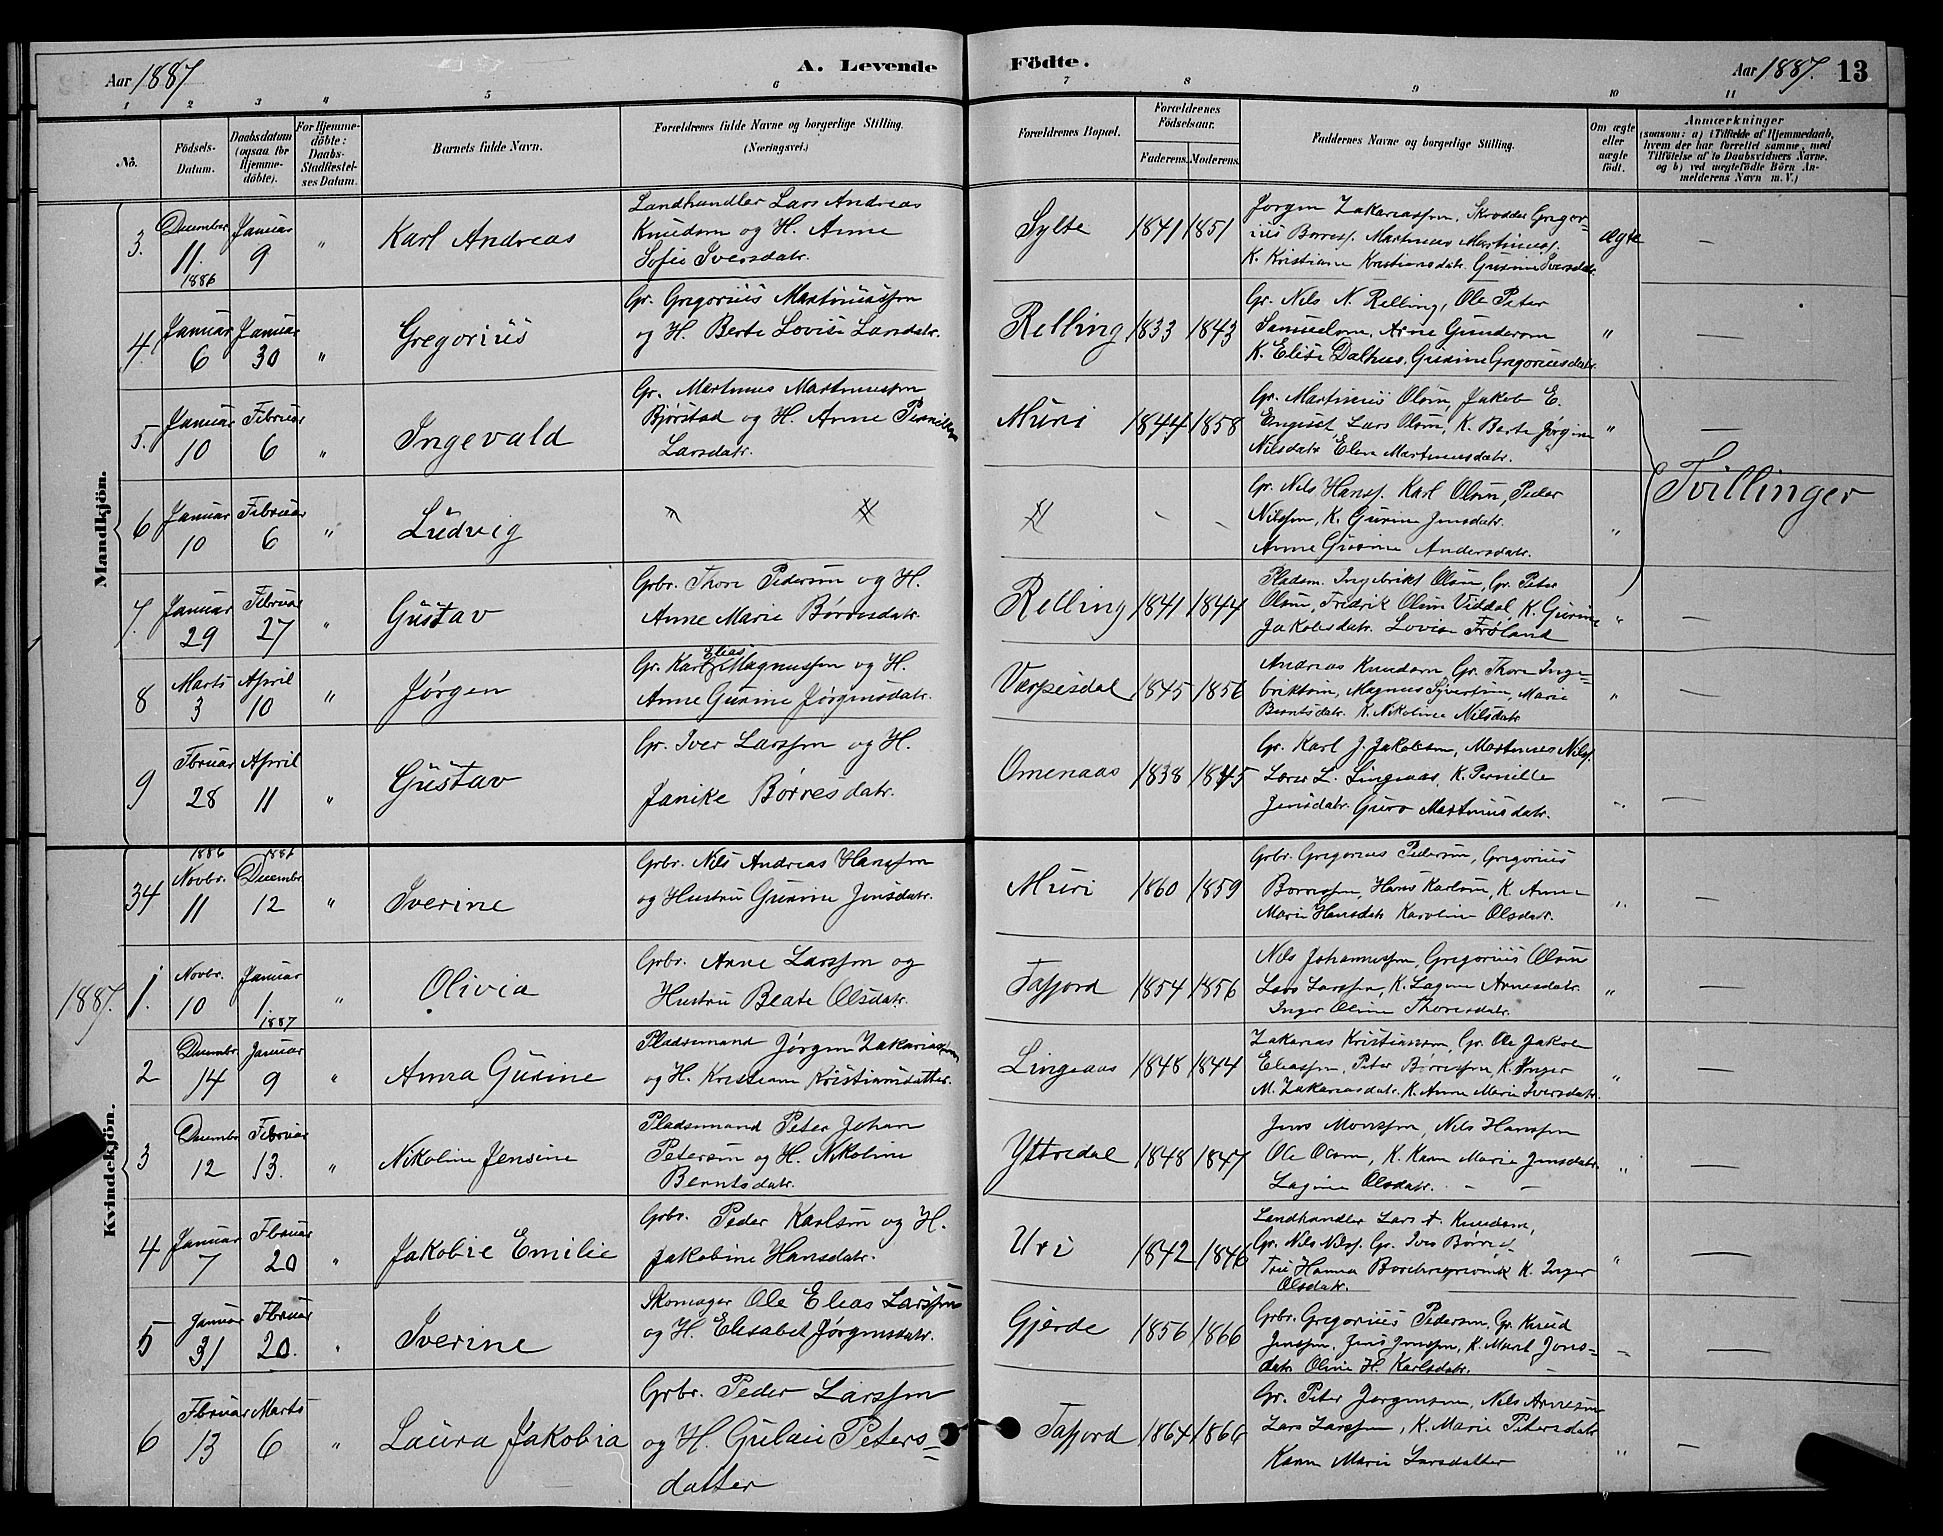 Aar 1887
A. Levende Födte.
Aar 1887. 13
1 2 3 4 5 6 7 8 9 10 11
No.
Födsels-Datum.
Daabsdatum (ogsaa for Hjemmedöbte).
For Hjemmedöbte: Daabs-Stadfæstelses Datum.
Barnets fulde Navn.
Forældrenes fulde Navne og borgerlige Stilling. (Næringsvei.)
Forældrenes Bopæl.
Forældrenes Födselsaar.
Faderens. Moderens.
Faddernes Navne og borgerlige Stilling.
Om ægte eller uægte födt.
Anmærkninger
(saasom: a) i Tilfælde af Hjemmedaab,
hvem der har forrettet samme, med
Tilföielse af to Daabsvidners Navne,
og b) ved uægtefödte Börn An-
melderens Navn m. V.)
Mandkjön.
3. December 11. 1886 Januar 9 " Karl Andreas
Landhandler Lars Andreas
Knudsen og H. Anne
Sofie Iversdatr.
Sylte 1841 1851
Jørgen Zakariassen, Skrædder Gregor-
ius Børress. Martinus Martinuss.
K. Kristiane Kristiansdatr. Gurine Iversdatr.
ægte —
4. Januar 6 Januar 30 " Gregorius
Gr. Gregorius Martinussen
og H. Berte Lovise Larsdatr.
Relling 1833 1843
Gr. Nils N. Relling, Ole Peter
Samuelsen, Arne Gunderson
K. Elise Dalhus, Gurine Gregoriusdatr.
" —
5. Januar 10 Februar 6 " Ingevald
Gr. Martinus Martinussen
Bjørstad og H. Anne Pernille
Larsdatr.
Muri 1844 1858
Gr. Martinus Olsen, Jakob E.
Engeset Lars Olsen, K. Berte Jørgine
Nilsdatr Elen Martinusdatr.
" —
Tvillinger
6 Januar 10 Februar 6 " Ludvig
" "
" - -
Gr. Nils Hanss. Karl Olsen, Peder
Nilssen, K. Gurine Jensdatr.
Anne Gurine Andersdatr.
"
7. Januar 29 Februar 27 " Gustav
Grbr. Thore Pedersen og H.
Anne Marie Børresdatr.
Relling 1841 1844
Pladsm. Ingebrikt Olsen, Gr. Peter
Olsen, Fredrik Olsen Viddal, K. Gurine
Jakobsdatr. Lovise Frøland
" —
8 Marts 3 April 10 " Jørgen
Gr. Karl Elias Magnussen og H.
Anne Gurine Jørgensdatr.
Værpesdal 1845 1856
Andreas Knudsen Gr. Thore Inge-
briktsen, Magnus Syvertsen, Marie
Berntsdatr. K. Nikoline Nilsdatr
" —
9 Februar 28 April 11 " Gustav
Gr. Iver Larssen og H.
Janike Børresdatr.
Omenaas 1838 1845
Gr. Karl J. Jakobsen, Martinus Nilss.
Lars L. Lingeaas, K. Pernille
Jensdatr. Guro Martinusdatr.
" —
Kvindekjön.
34 1886 Novbr. 11 1886 Decembr. 12 " Iverine
Grbr. Nils Andreas Hanssen
og Hustru Gurine Jensdatr.
Muri 1860 1859
Grbr. Gregorius Pedersen, Gregorius
Børresen, Hans Karlsen, K. Anne
Marie Hansdatr Karoline Olsdatr.
" —
1887. 1. Novbr. 10 Januar 1. 1887 " Olivia
Grbr. Arne Larssen og
Hustru Beate Olsdatr.
Tafjord 1854 1856
Nils Johannessen, Gregorius Olsen
Lars Larssen, K. Lagine Arnesdatr.
Inger Oline Thoresdatr.
" —
2 Decembr. 14 Januar 9 " Anna Gurine
Pladsmand Jørgen Zakariassen
og H. Kristiane Kristiansdatter.
Lingeaas 1848 1844
Zakarias Kristiansen, Gr. Ole Jakob
Eliassen, Peter Børressen, K. Inger
M. Zakariasdatr. K. Anne Marie Iversdatr.
" —
3 Decembr 12 Februar 13. " Nikoline Jensine
Pladsmand Peter Johan
Petersen og H. Nikoline
Berntsdatr.
Yttredal 1848 1847
Jens Monssen, Nils Hanssen
Ole Olsen, K. Karen Marie Jensdatr.
Lagine Olsdatr. - -
" —
4 Januar 7 Februar 20 " Jakobie Emilie
Grbr. Peder Karlsen og H.
Jakobine Hansdatr.
Uri 1842 1846
Landhandler Lars A. Knudsen,
Gr. Nils Nilss. Gr. Iver Børres
K. Inger
Olsdatr.
" —
5 Januar 31 Februar 20. " Iverine
Skomager Ole Elias Larssen
og H. Elisabet Jørgensdatr.
Gjerde 1856 1866
Grbr. Gregorius Pedersen, Gr. Knud
Jenssen, Jens Jenssen, K. Marit Jens-
datr. Oline H. Karlsdatr. —
- —
6 Februar 13 Marts 6 " Laura Jakobia
Grbr. Peder Larssen
og H. Gulaie Peters-
datter
Tafjord 1864 1866
Gr. Peter Jørgensen, Nils Arnesen
Lars Larssen, K. Marie Petersdatr
Karen Marie Larsdatter
" —